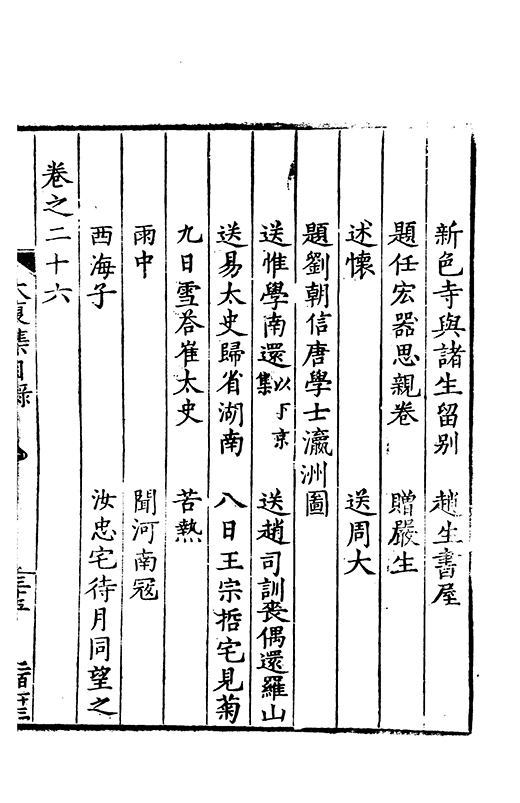 新色寺與諸生留别　趙生書屋
題任宏器思親卷　贈嚴生
述懷　送周大
題劉朝信唐學士瀛洲圖
送惟學南還以下京集　送趙司訓喪偶還羅山
送易太史歸省湖南　八日王宗哲宅見菊
九日雪荅崔太史　苦熱
雨中　聞河南冦
西海子　汝忠宅待月同望之
卷之二十六
大復集目録